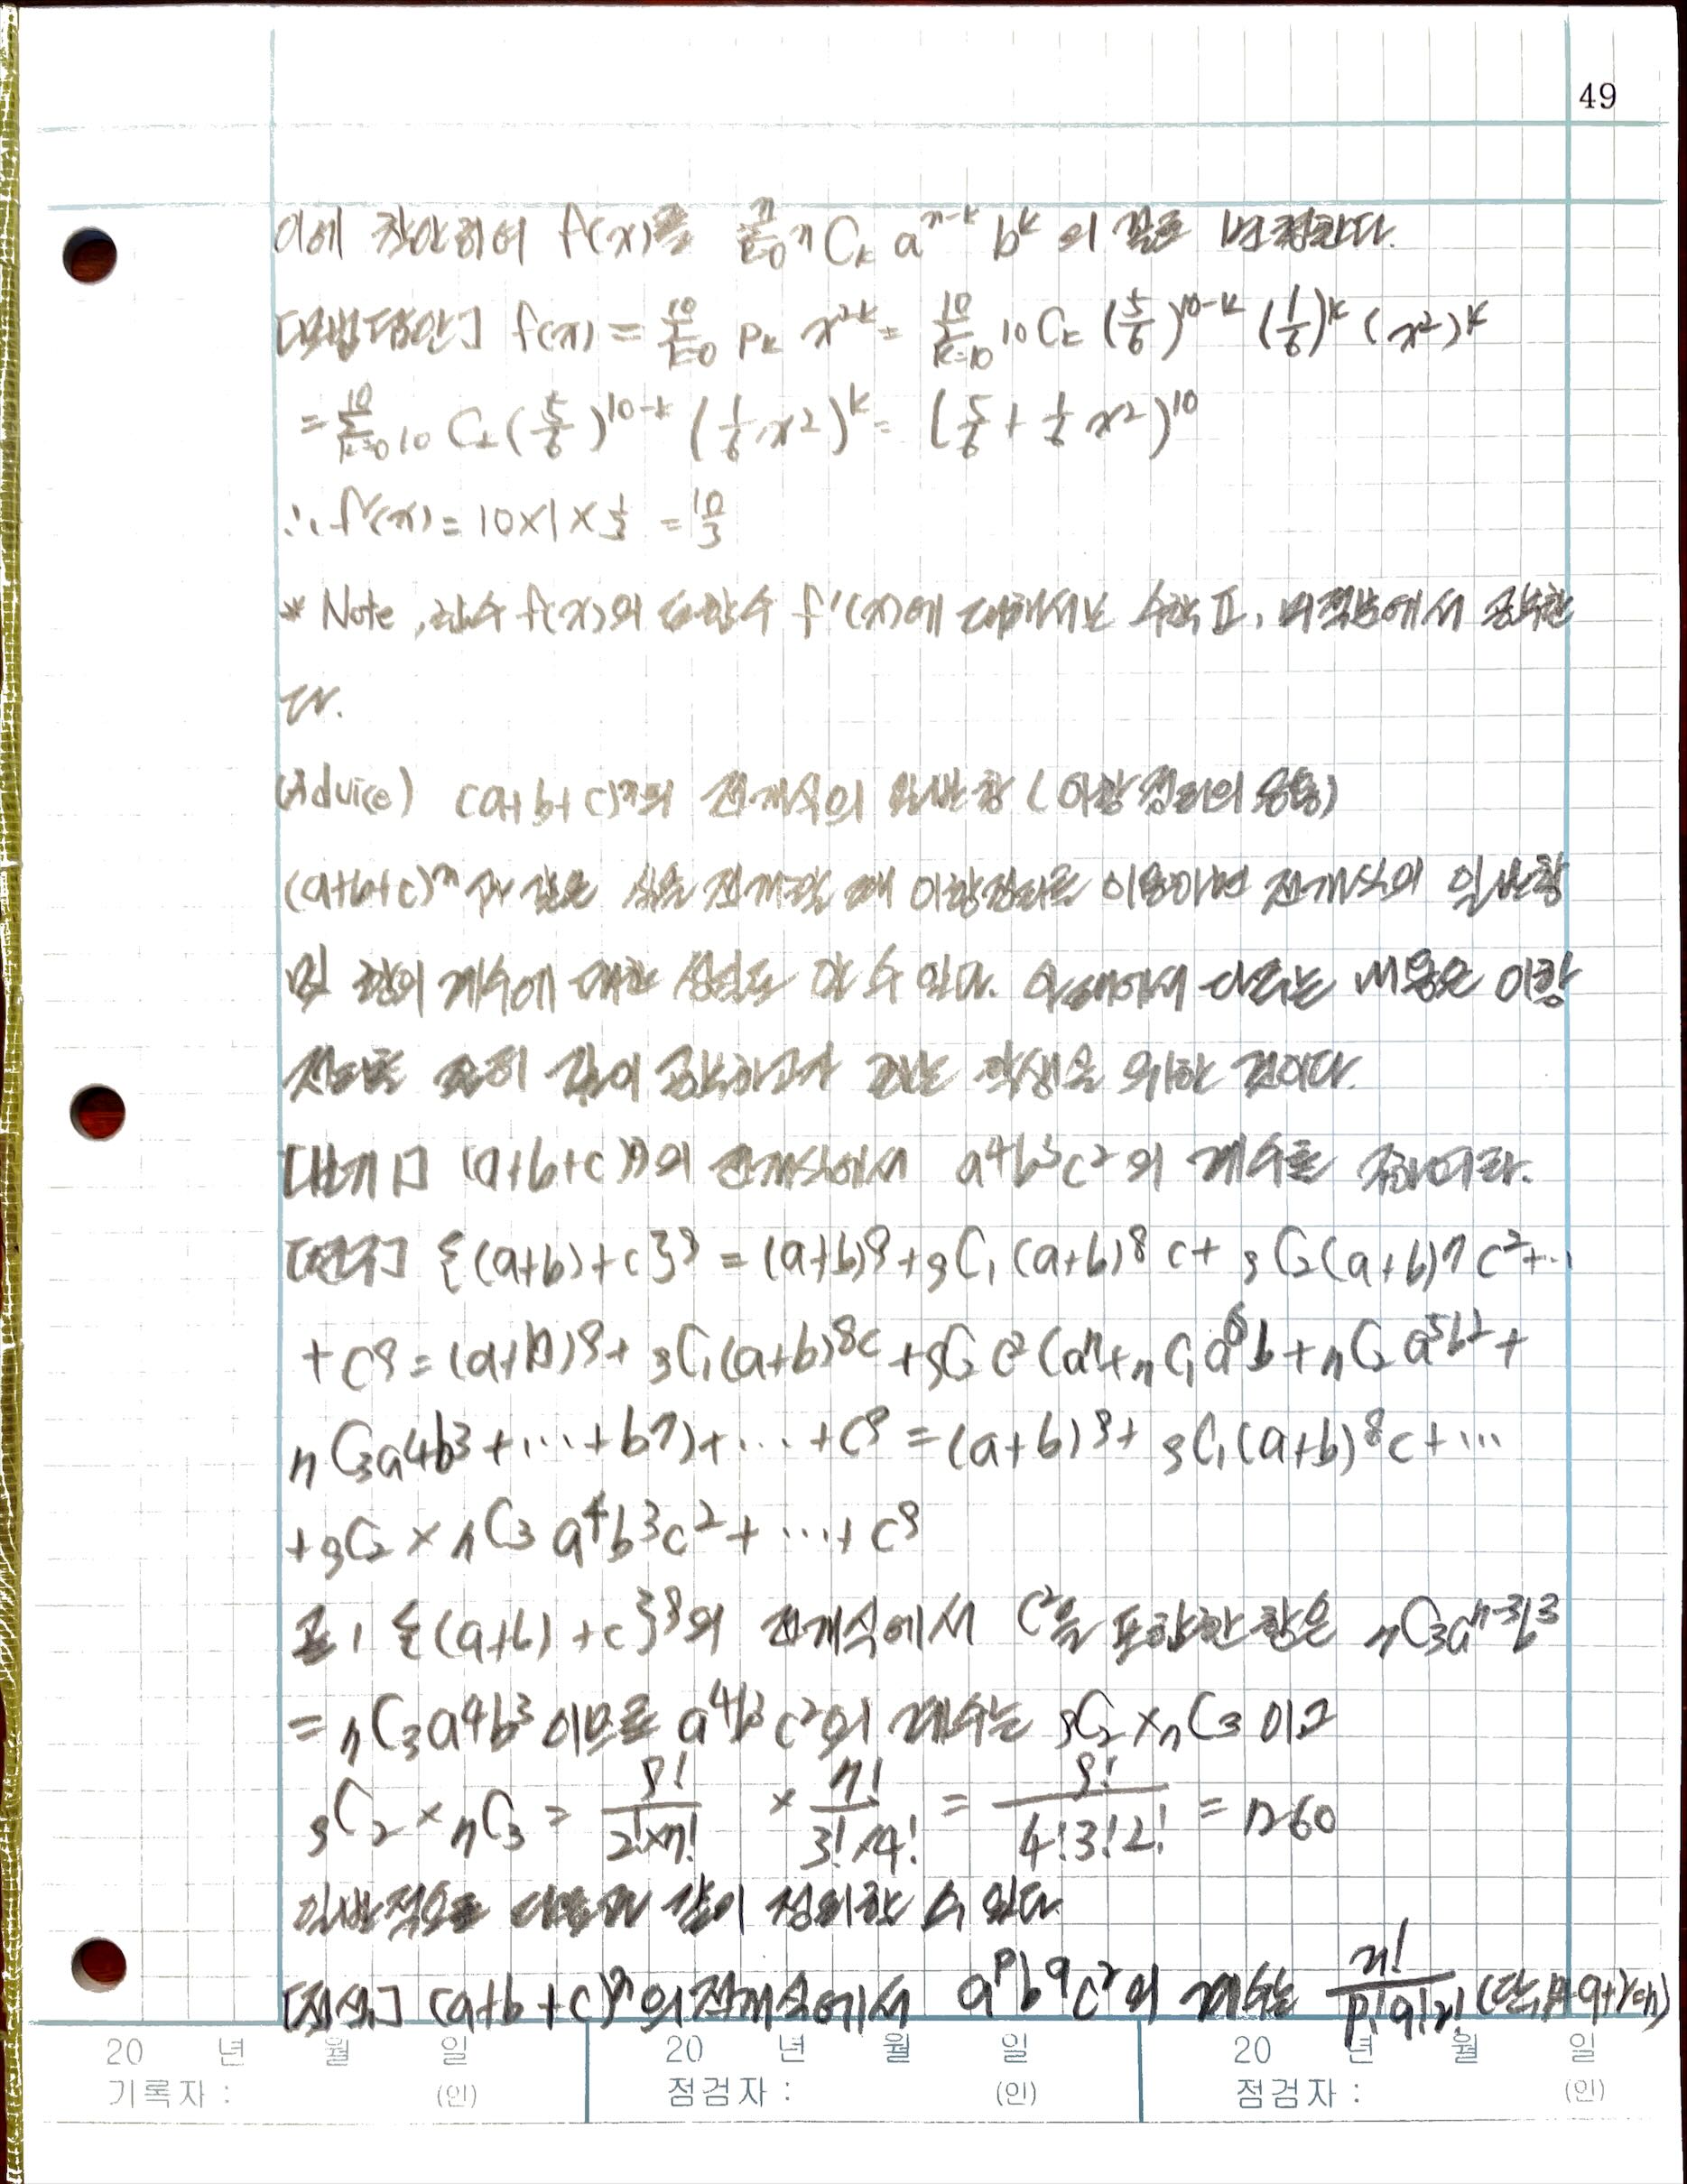 49
이에 착안하여 f(x)를 \sum_{k=0}^{n} {}_nC_k a^{n-k} b^k 의 꼴로 변형한다.
[모범답안] f(x) = \sum_{k=0}^{10} P_k x^{2k} = \sum_{k=10}^{10} {}_{10}C_k (5/6)^{10-k} (1/6)^k (x^2)^k
= \sum_{k=0}^{10} {}_{10}C_k (5/6)^{10-k} (1/6 x^2)^k = (5/6 + 1/6 x^2)^{10}
∴ f'(x) = 10×1×1/3 = 10/3
* Note, 함수 f(x)의 도함수 f'(x)에 대해서는 수학Ⅱ, 미적분에서 공부한
다.
(Advice) (a+b+c)^n의 전개식의 일반항 (이항정리의 응용)
(a+b+c)^n 과 같은 식을 전개할 때 이항정리를 이용하면 전개식의 일반항
및 항의 계수에 대한 성질도 알 수 있다. 아래에서 다루는 내용은 이항
정리를 깊이 공부하고자 하는 학생을 위한 것이다.
[보기 1] (a+b+c)^9의 전개식에서 a^4b^3c^2의 계수를 구하여라.
[연구] {(a+b)+c}^9 = (a+b)^9 + {}_9C_1 (a+b)^8 c + {}_9C_2 (a+b)^7 c^2 + ···
+ c^9 = (a+b)^9 + {}_9C_1 (a+b)^8 c + {}_9C_2 c^2 (a^7 + {}_7C_1 a^6 b + {}_7C_2 a^5 b^2 +
{}_7C_3 a^4 b^3 + ··· + b^7) + ··· + c^9 = (a+b)^9 + {}_9C_1 (a+b)^8 c + ···
+ {}_9C_2 × {}_7C_3 a^4 b^3 c^2 + ··· + c^9
곧, {(a+b)+c}^9의 전개식에서 c^2을 포함한 항은 {}_7C_3 a^{7-3} b^3
= {}_7C_3 a^4 b^3 이므로 a^4b^3c^2의 계수는 {}_9C_2 × {}_7C_3 이고
{}_9C_2 × {}_7C_3 = 9!/(2!×7!) × 7!/(3!×4!) = 9!/(4!3!2!) = 1260
일반적으로 다음과 같이 정의할 수 있다
[정석] (a+b+c)^n의 전개식에서 a^p b^q c^r의 계수는 n!/(p!q!r!) (단, p+q+r=n)
20 년 월 일 20 년 월 일 20 년 월 일
기록자 : (인) 점검자 : (인) 점검자 : (인)